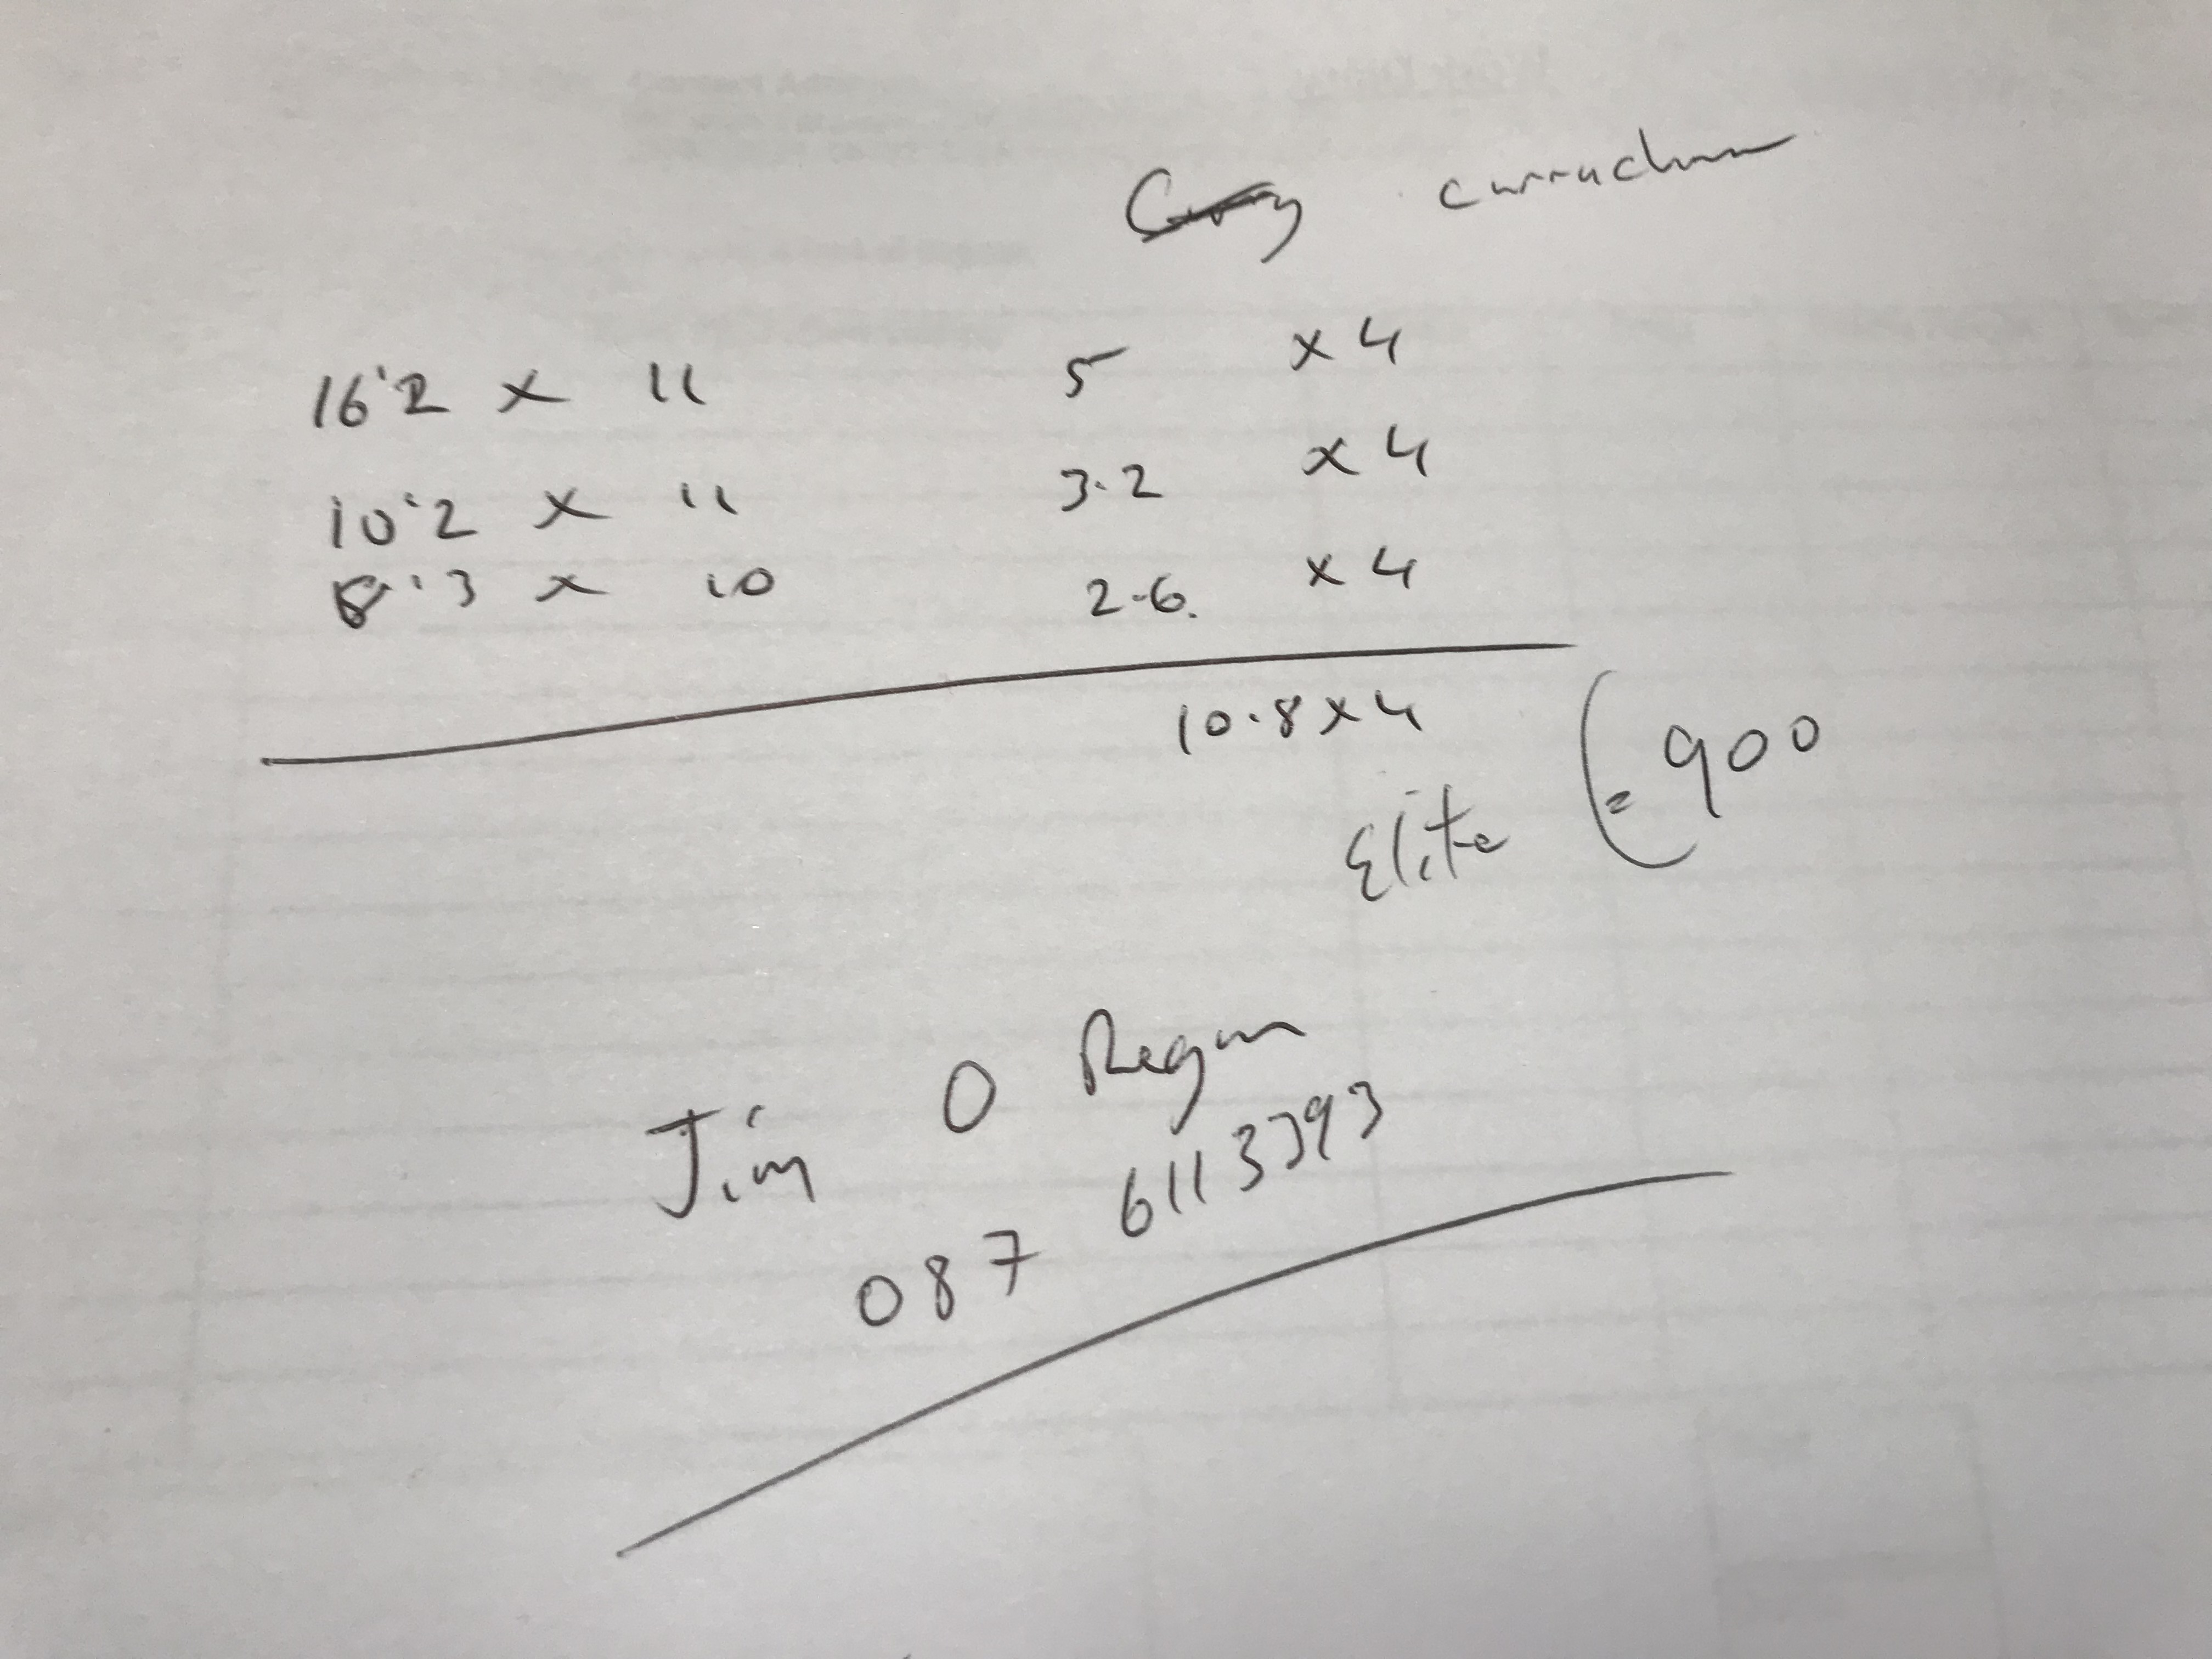 currachase
16'2 x 11 5 x 4
10'2 x 11 3.2 x 4
8'3 x 10 2.6. x 4
10.8 x 4
Elite = 900
Jim O Regan
087 6113393